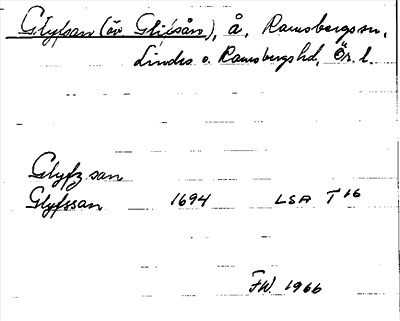 Glyfsan (äv Glifsån), å, Ramsbergs sn,
Lindes o. Ramsbergs hd, Ör. l.
Glyfz san
Glyfssan 1694 LSA T 16
FW. 1966